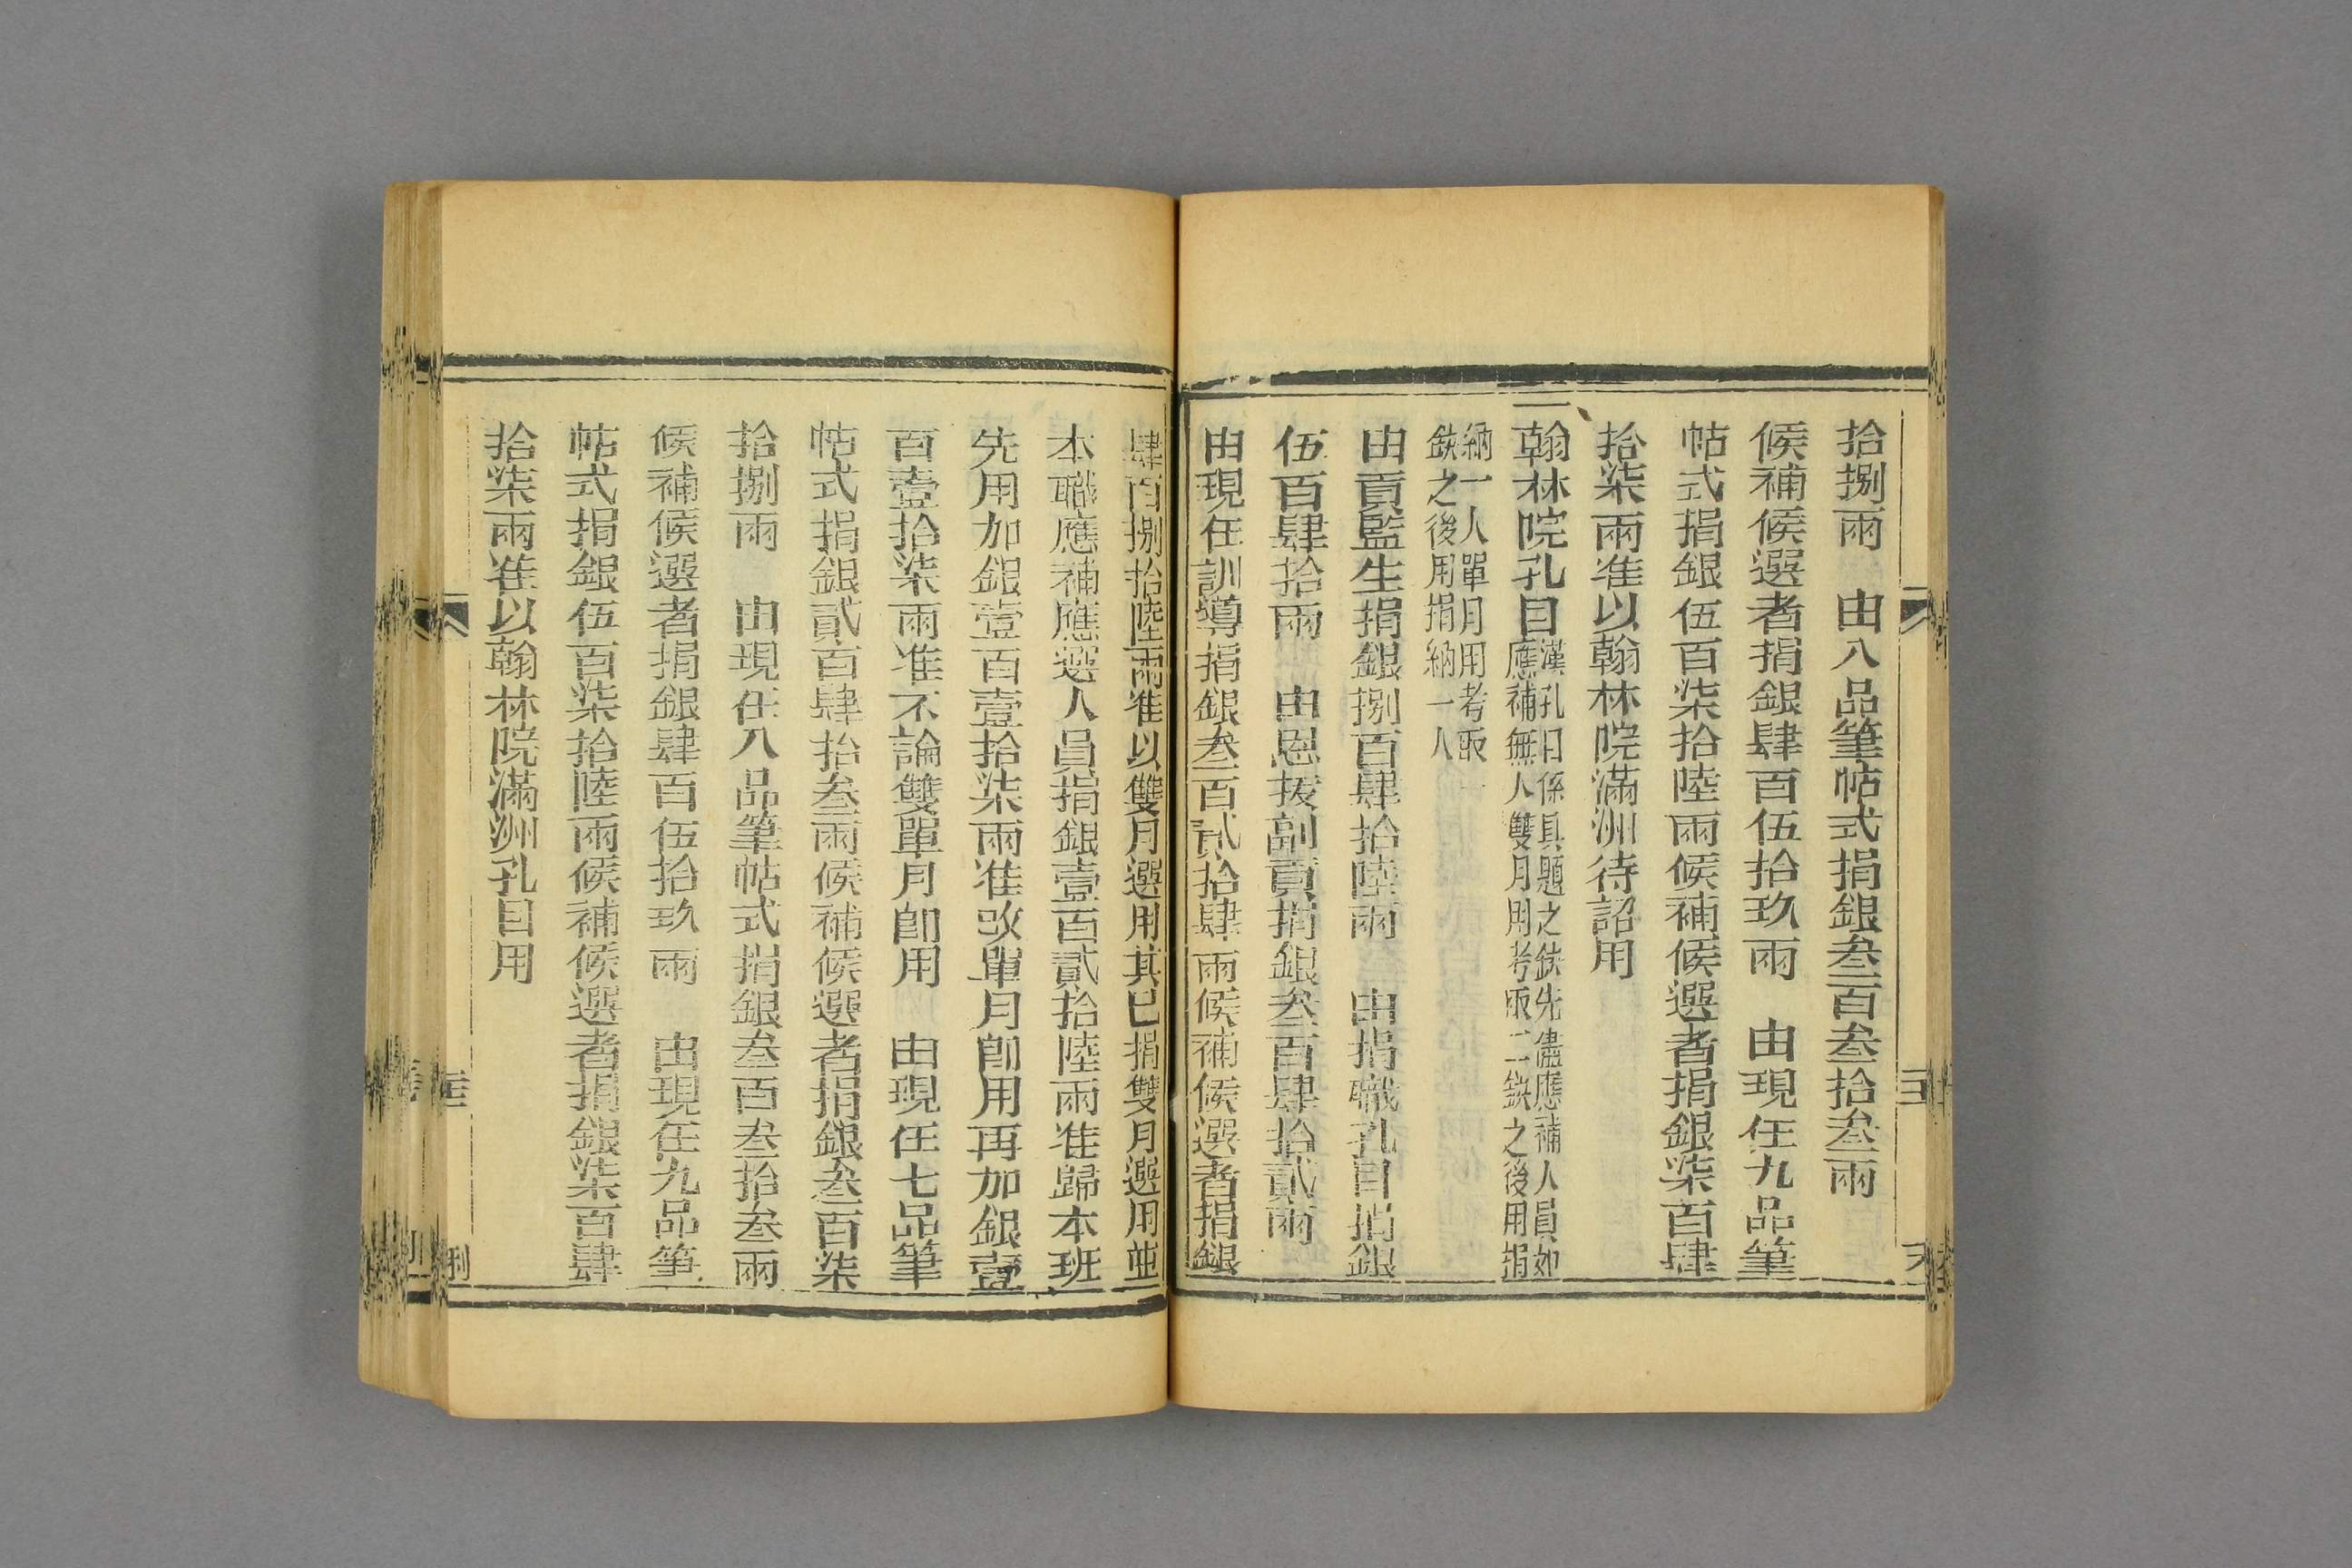 拾捌兩　由八品筆帖式捐銀叁百叁拾叁兩
候補候選者捐銀肆百伍拾玖兩　由現任九品筆
帖式捐銀伍百柒拾陸兩候補候選者捐銀柒百肆
拾柒兩准以翰林院滿洲待詔用
一翰林院孔目漢孔目係具題之缺先儘應補人員如
應補無人雙月用考取二缺之後用捐
納一人單月用考取
缺之後用捐納一人
由貢監生捐銀捌百肆拾陸兩　由捐職孔目捐銀
伍百肆拾兩　由恩拔副貢捐銀叁百肆拾貳兩
由現任訓導捐銀叁百貳拾肆兩候補候選者捐銀
肆百捌拾陸兩准以雙月選用其已捐雙月選用並
本職應補應選人員捐銀壹百貳拾陸兩准歸本班
先用加銀壹百壹拾柒兩准改單月卽用再加銀壹
百壹拾柒兩准不論雙單月卽用　由現任七品筆
帖式捐銀貳百肆拾叁兩候補候選者捐銀叁百柒
拾捌兩　由現任八品筆帖式捐銀叁百叁拾叁兩
候補候選者捐銀肆百伍拾玖兩　由現任九品筆
帖式捐銀伍百柒拾陸兩候補候選者捐銀柒百肆
拾柒兩准以翰林院滿洲孔目用